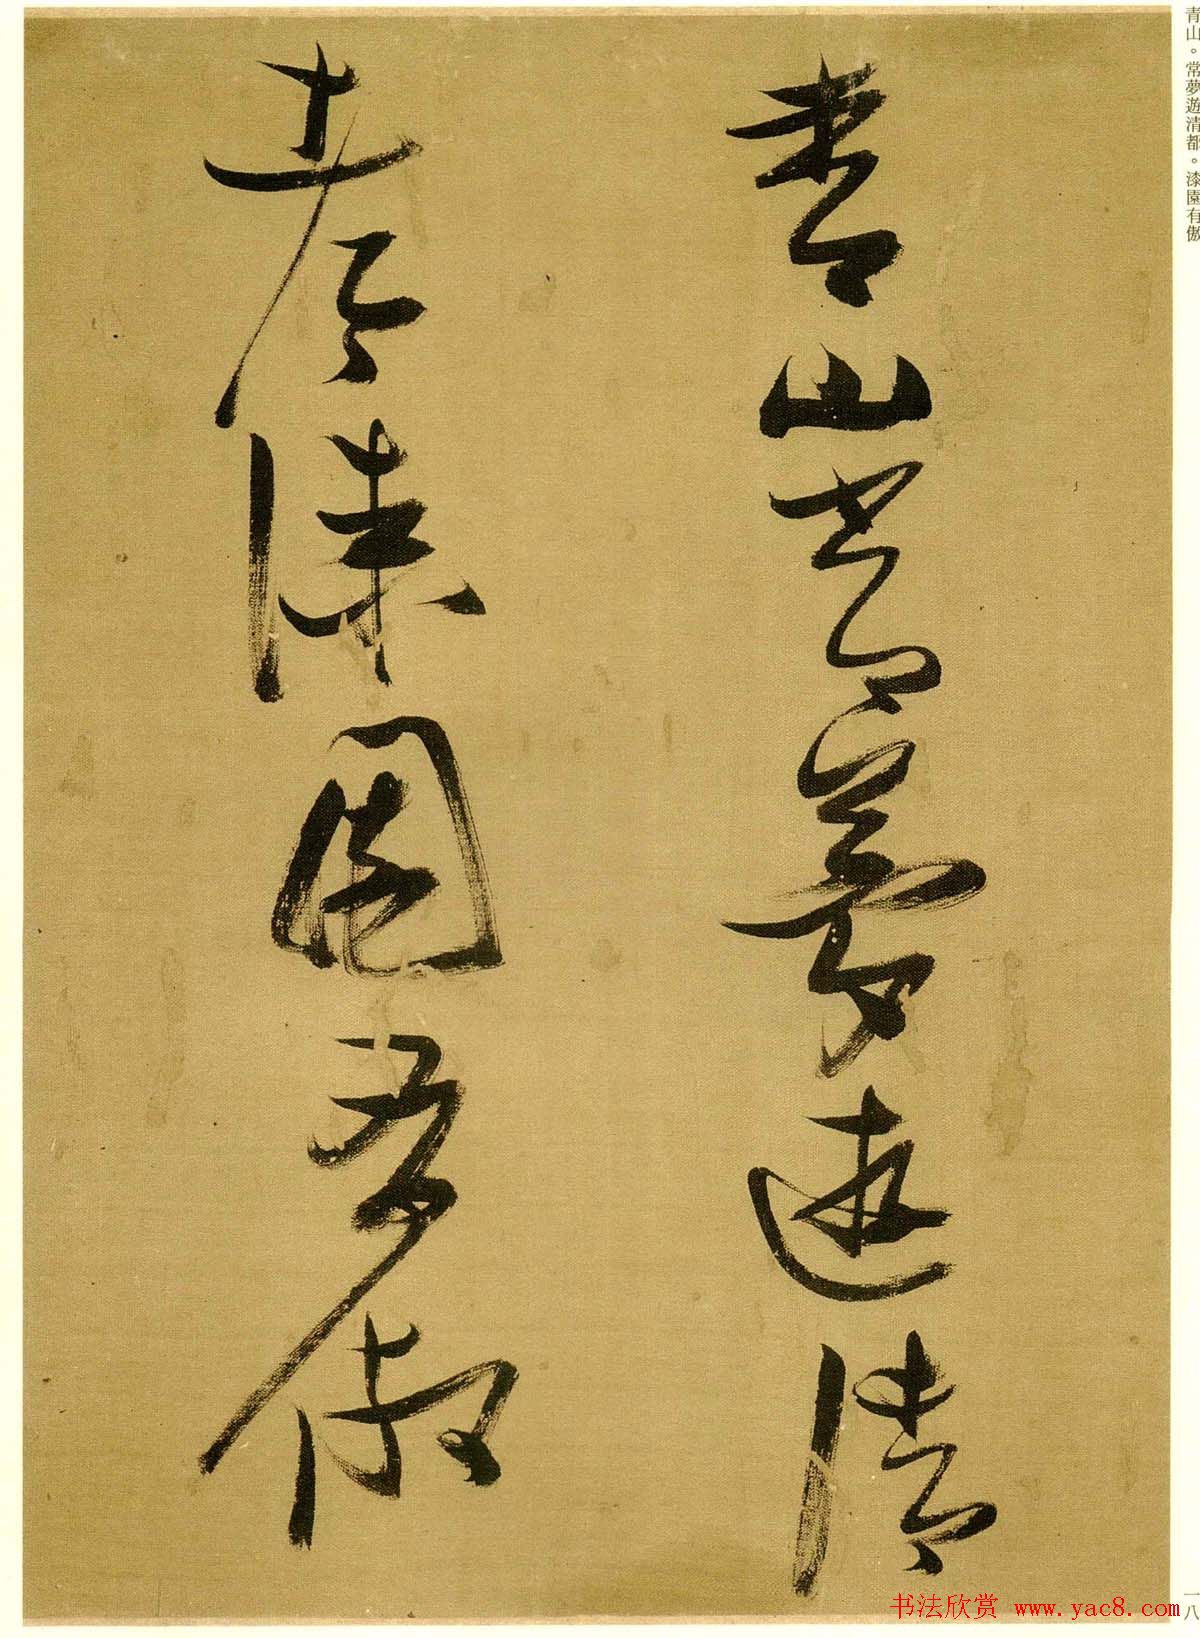 青山常夢遊清
都漆園有傲
青山。常夢遊清都。漆園有傲
一八
书法欣赏 www.yac8.com